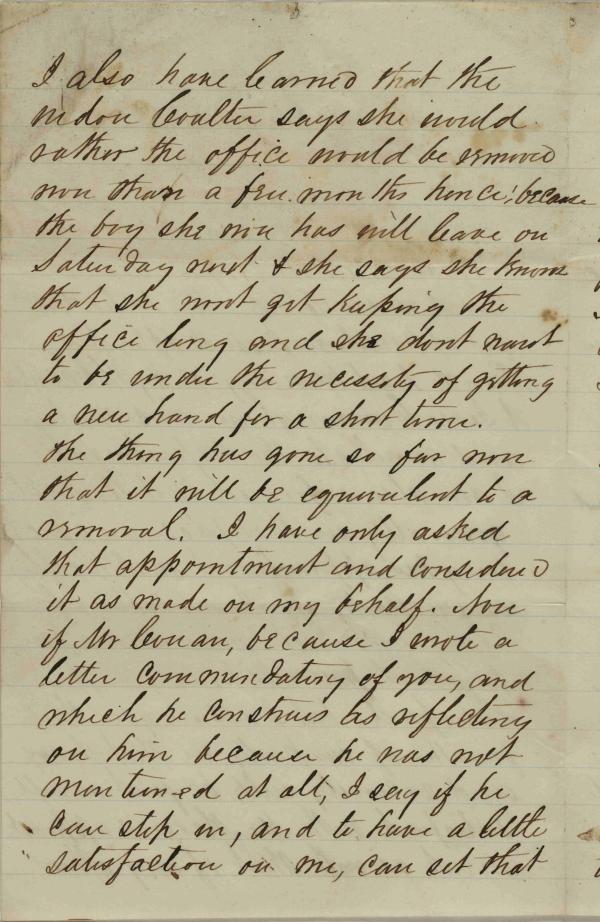 I also have learned that the
widow Coulter says she would
rather the office would be removed
now than a few months hence; because
the boy she now has will leave on
Saturday next & she says she knows
that she wont get keeping the
office long and she dont want
to be under the necessity of getting
a new hand for a short time.
the thing has gone so far now
that it will be equivalent to a
removal. I have only asked
that appointment and considered
it as made on my behalf. Now
if Mr Cowan, because I wrote a
letter commendatory of you, and
which he construes as reflecting
on him because he was not
mentioned at all, I say if he
can step in, and to have a little
satisfaction on me, can set that